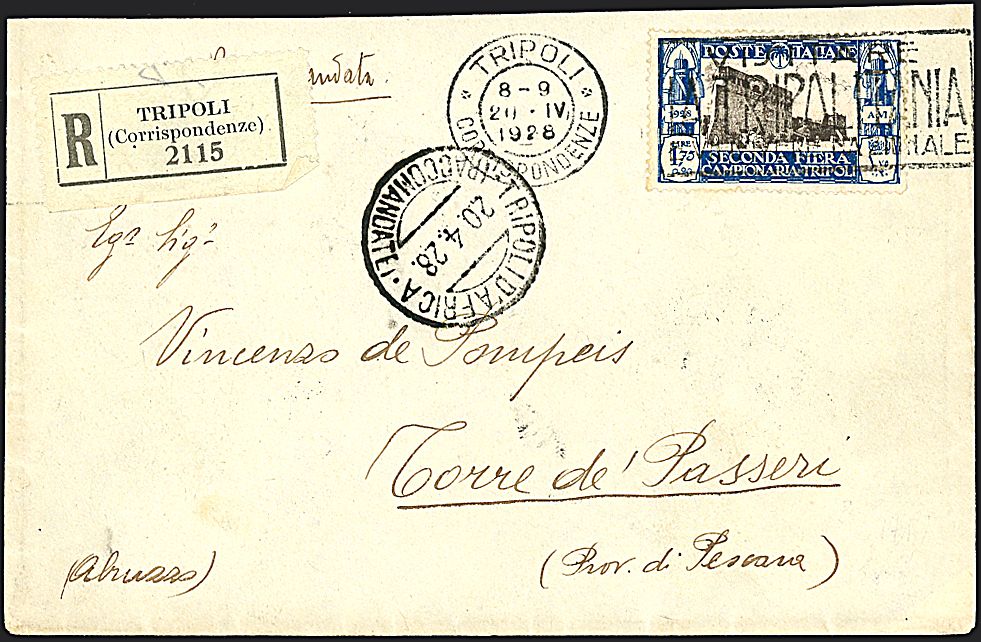 R
TRIPOLI
(Corrispondenze)
2115
TRIPOLI
8-9
20·IV
1928
CORRISPONDENZE
POSTE ITALIANE
1928
LIRE
1,75
SECONDA FIERA
CAMPIONARIA·TRIPOLI
VISITATE
TRIPOLITANIA
TRIPOLI D'AFRICA
20.4.28.
Egr. Sigr
Vincenzo de Pompeis
Torre de' Passeri
(Abruzzo)
(Prov. di Pescara)